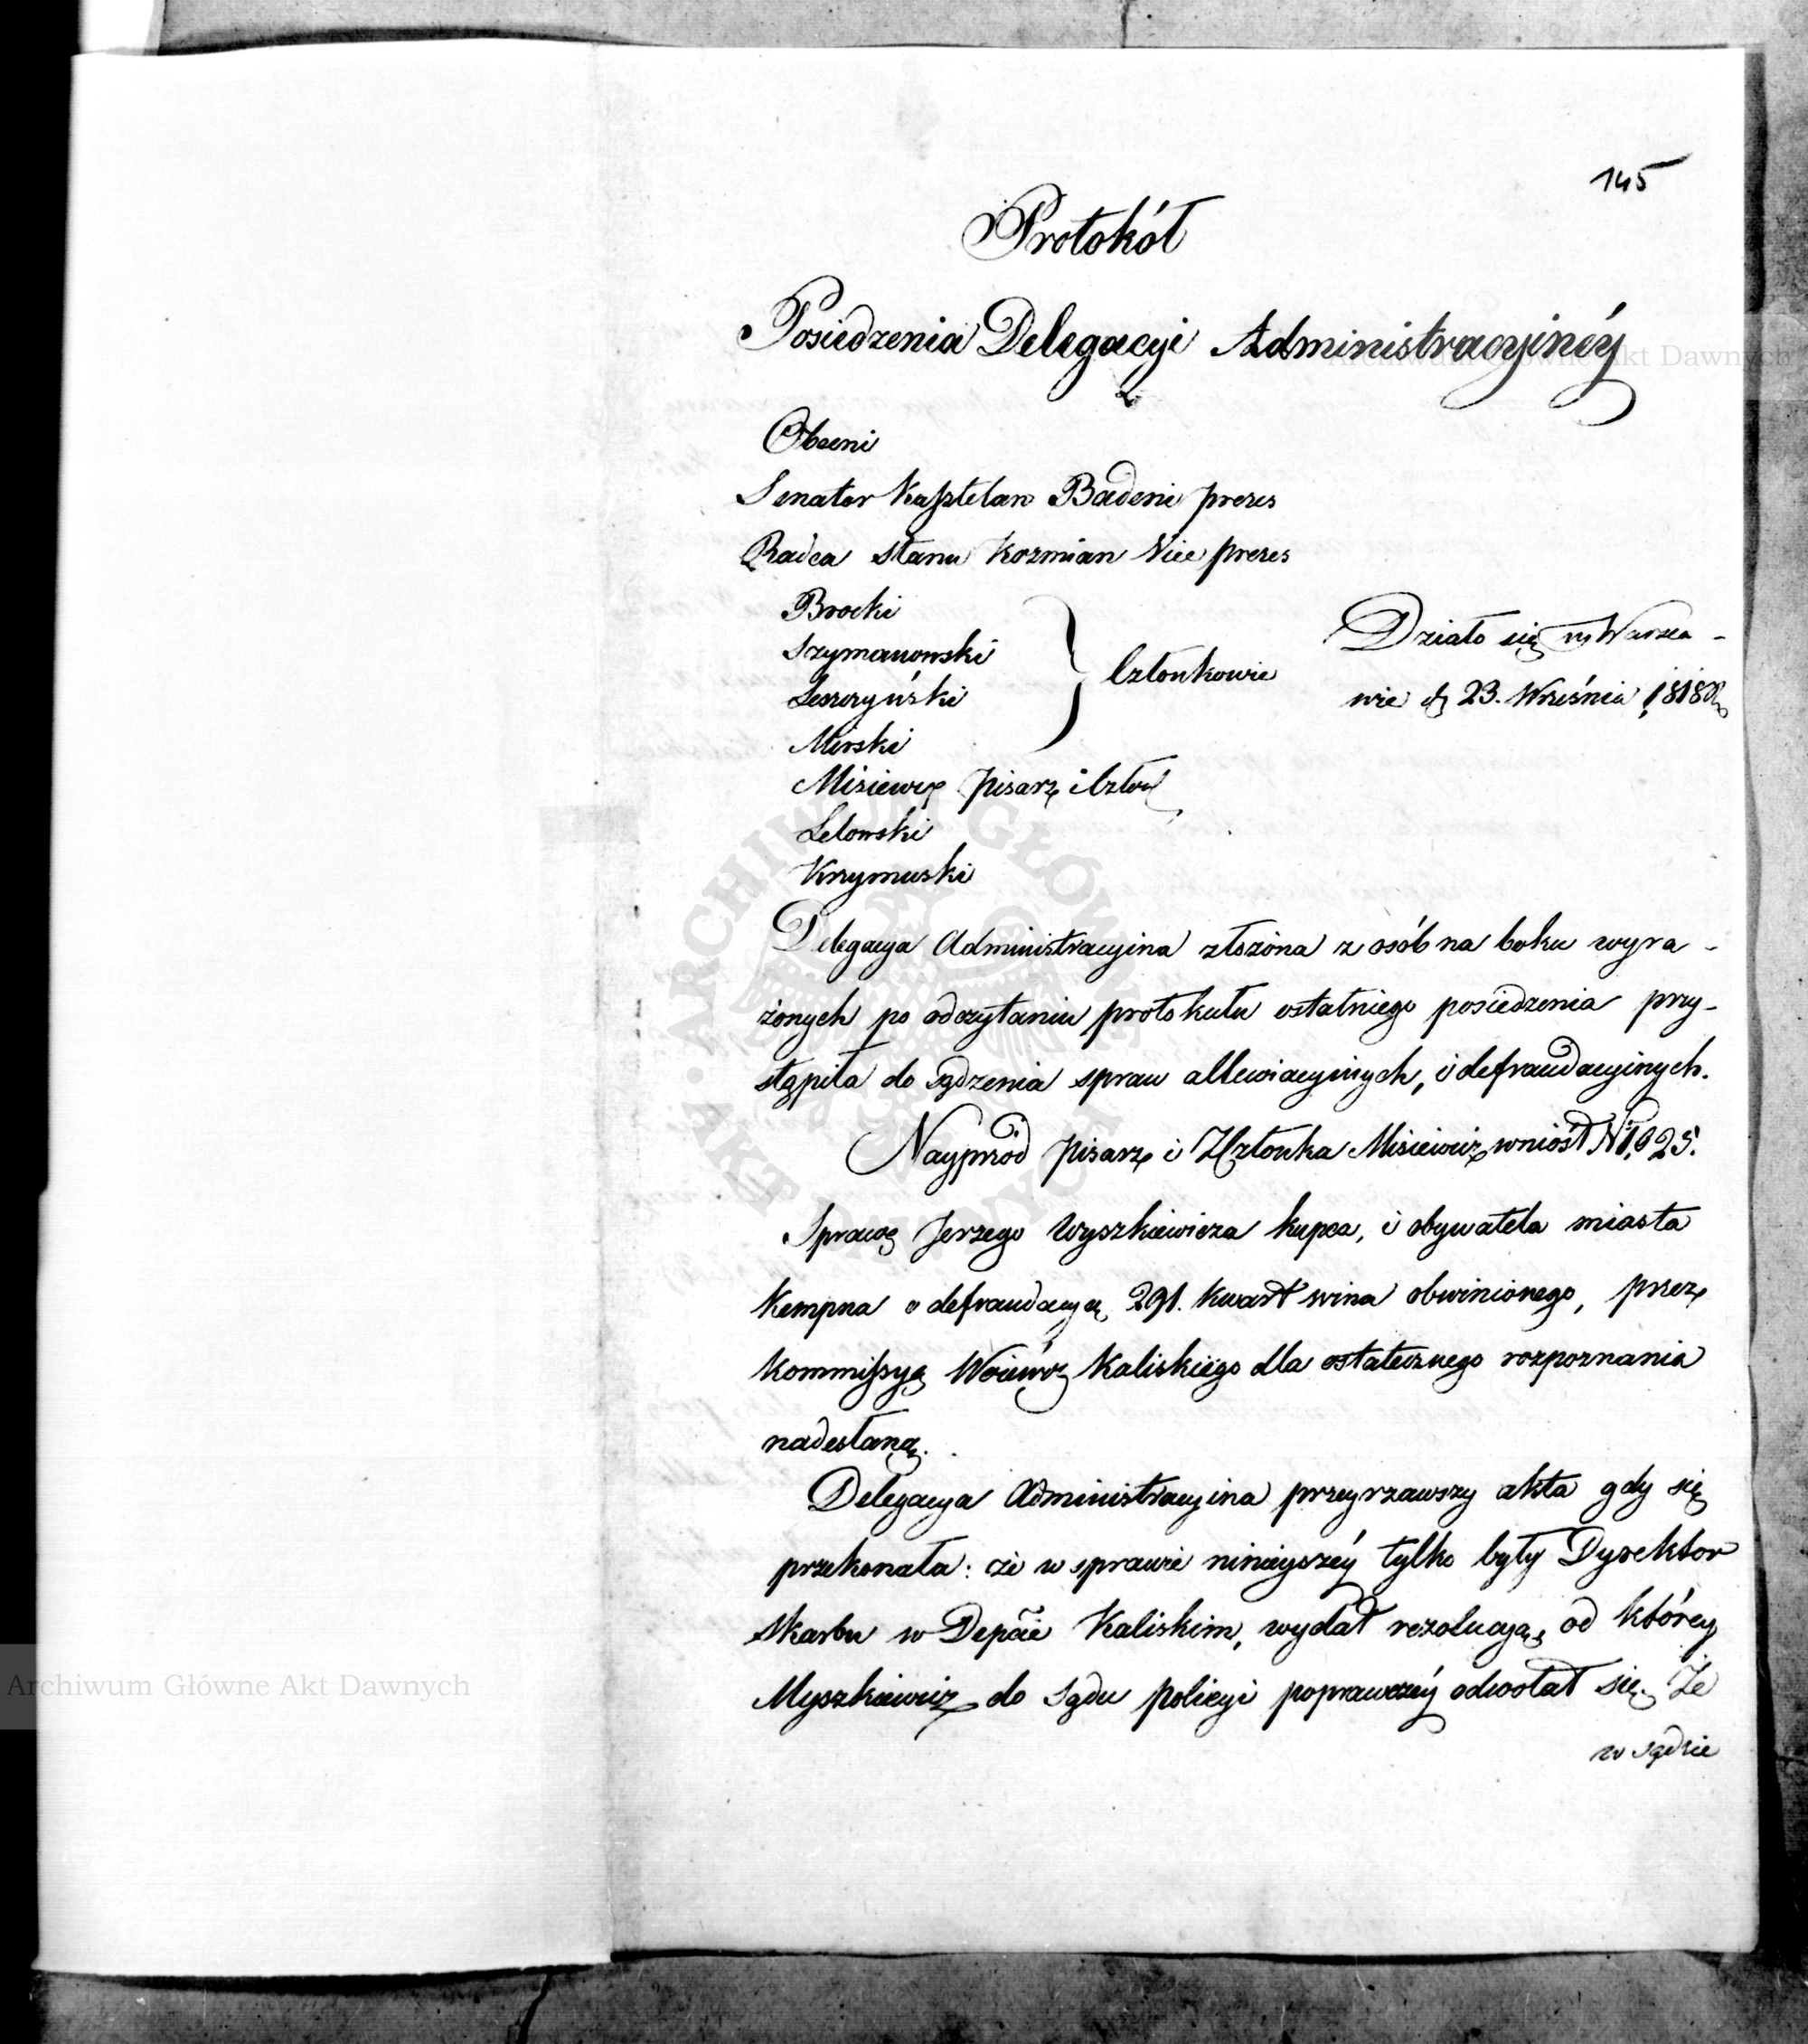 145
Protokół
Posiedzenia Delegacyi Administracyinéy
Obecni
Senator Kasztelan Badeni prezes
Radca Stanu Kozmian Vice prezes
Brocki
Szymanowski
Leszczyński
Mirski
Członkowie
Działo się w Warsza-
wie d. 23. Września 1818 R.
Misiewicz Pisarz i Człon
Lelowski
Krzymuski
Delegacya Administracyina złożona z osób na boku wyra-
żonych po odczytaniu protokułu ostatniego posiedzenia przy-
stąpiła do sądzenia spraw allewiacyinych, i defraudacyinych.
Nayprzód Pisarz i Członka Misiewicz wniósł N 1,925.
Sprawę Jerzego Wyszkiewicza kupca, i obywatela miasta
Kempna o defraudacyą 291. kwart wina obwinionego, przez
Kommissyą Woiewó Kaliskiego dla ostatecznego rozpoznania
nadesłaną.
Delegacya Administracyina przeyrzawszy akta gdy się
przekonała: że w sprawie ninieyszéy tylko były Dyrektor
Skarbu w Depcie Kaliskim, wydał rezolucyą, od którey
Myszkiewicz do Sądu policyi poprawczéy odwołał się. Że
w sądzie
Archiwum Główne Akt Dawnych
Archiwum Główne Akt Dawnych
ARCHIWUM GŁÓWNE AKT DAWNYCH